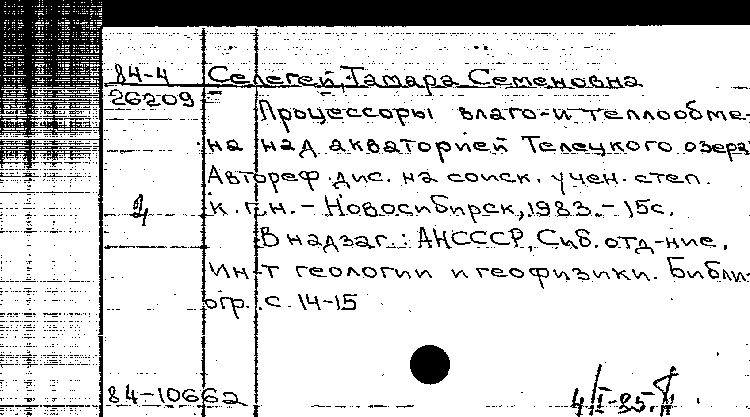 84-4 Селегей, Тамара Семеновна
26209
Процессоры влаго- и теплообме-
на над акваторией Телецкого озера
Автореф. дис. на соиск. учен. степ.
к. г. н. - Новосибирск, 1983. - 15с.
В надзаг.: АНСССР, Сиб. отд-ние,
Ин-т геологии и геофизики. Библи-
огр. с. 14-15
84-10662
4/I-85